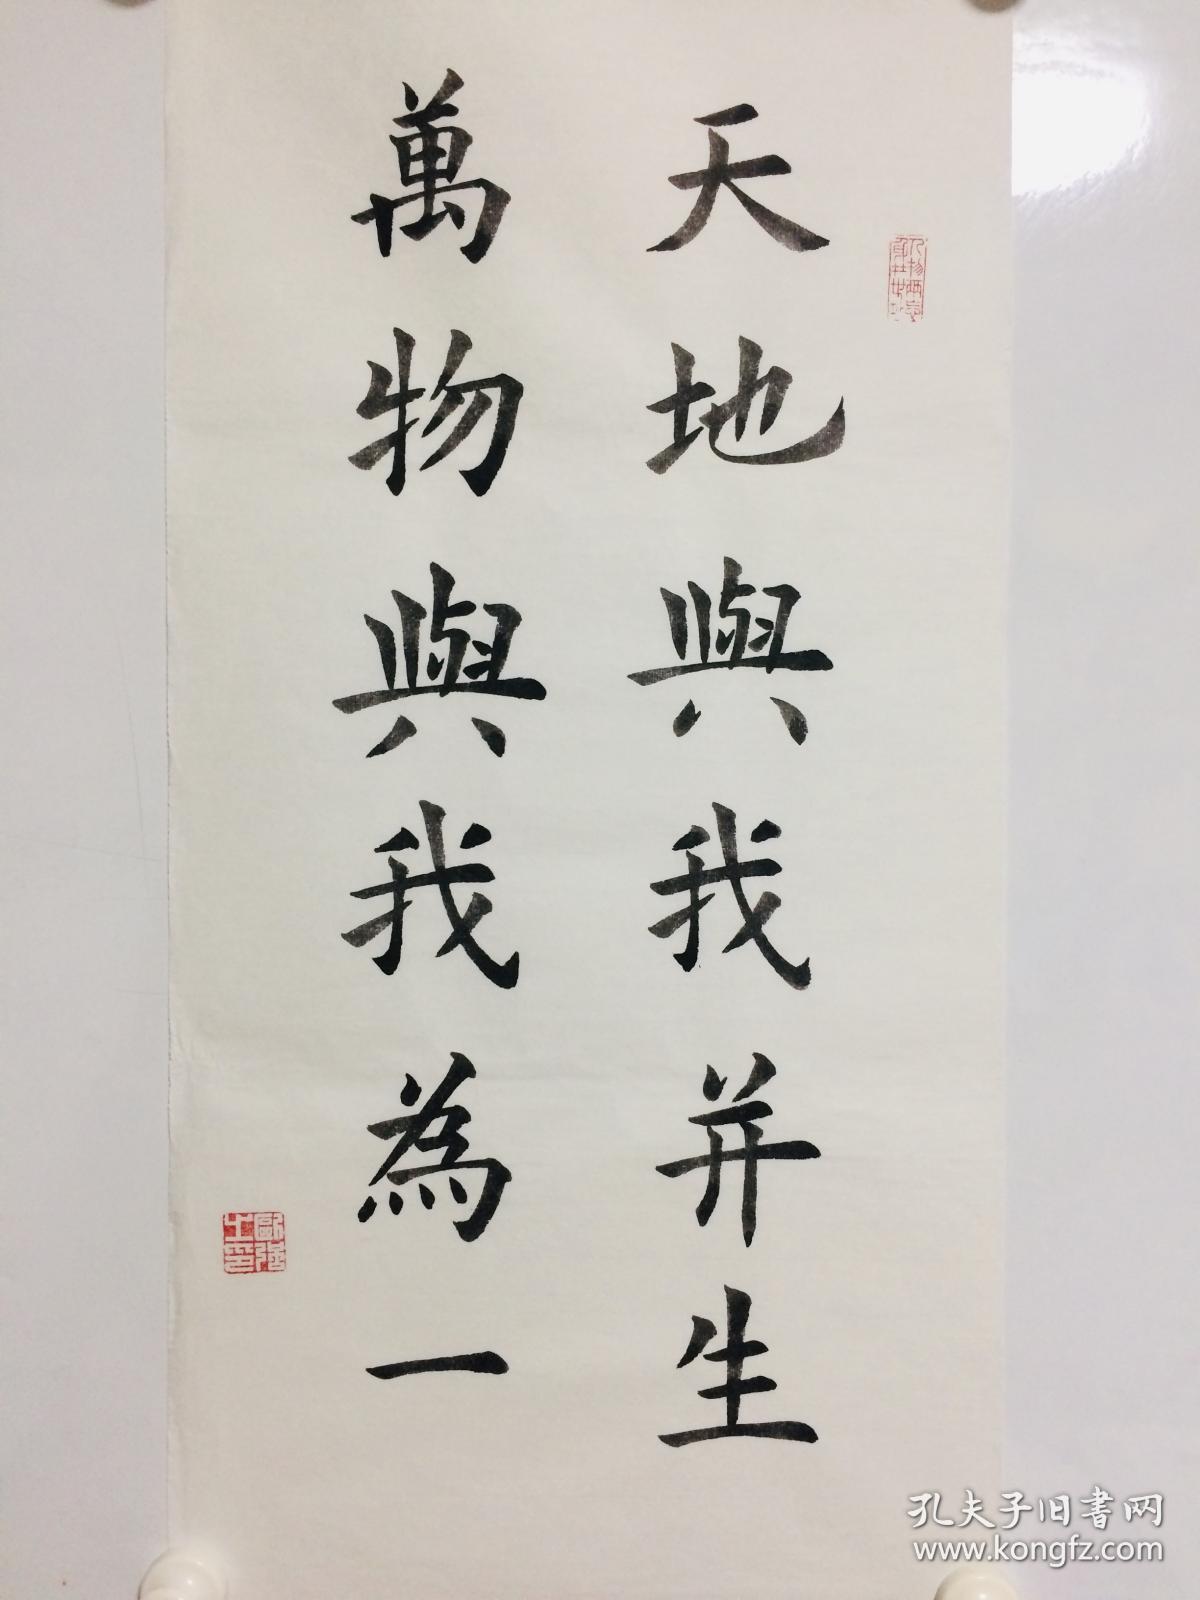 天地與我并生
萬物與我為一
孔夫子旧书网
www.kongfz.com